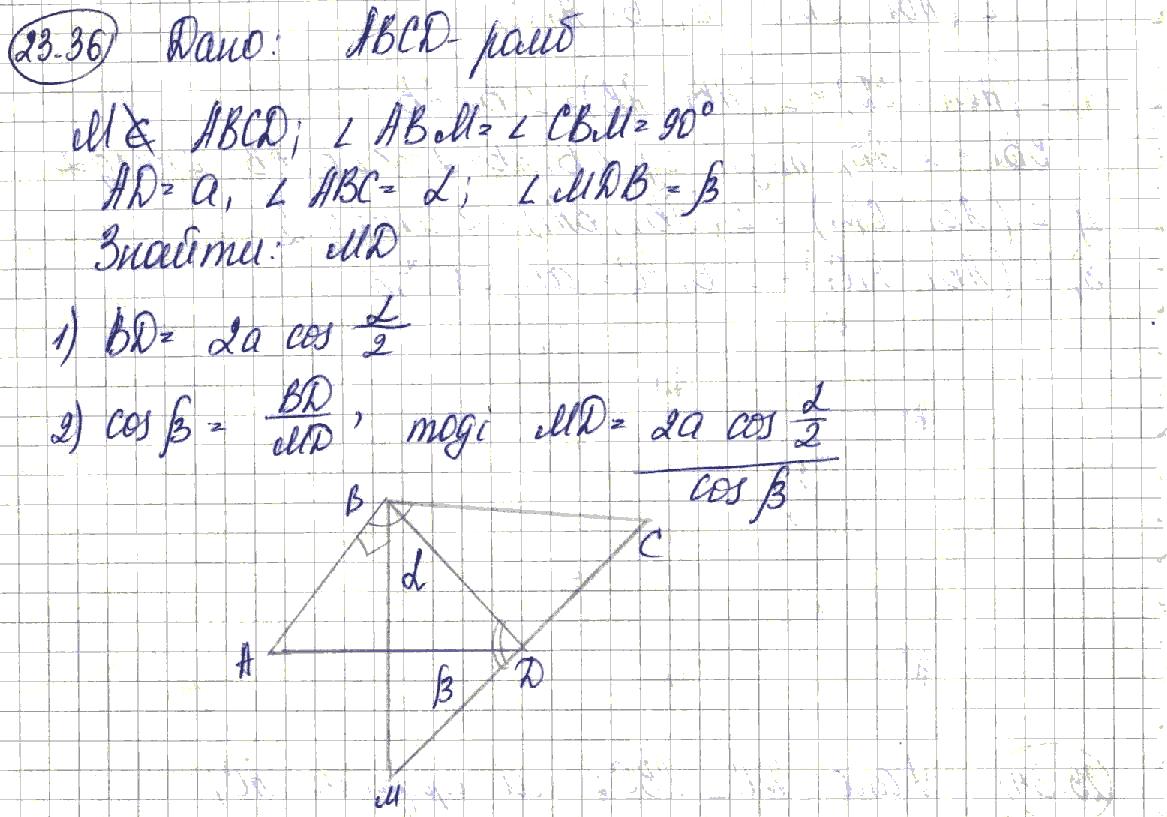 23.36 Дано: ABCD - ромб
M ∉ ABCD; ∠ ABM = ∠ CBM = 90°
AD = a, ∠ ABC = α; ∠ MDB = β
Знайти: MD
1) BD = 2a cos α/2
2) cos β = BD/MD, тоді MD = 2a cos α/2 / cos β
B
C
α
A
β
D
M